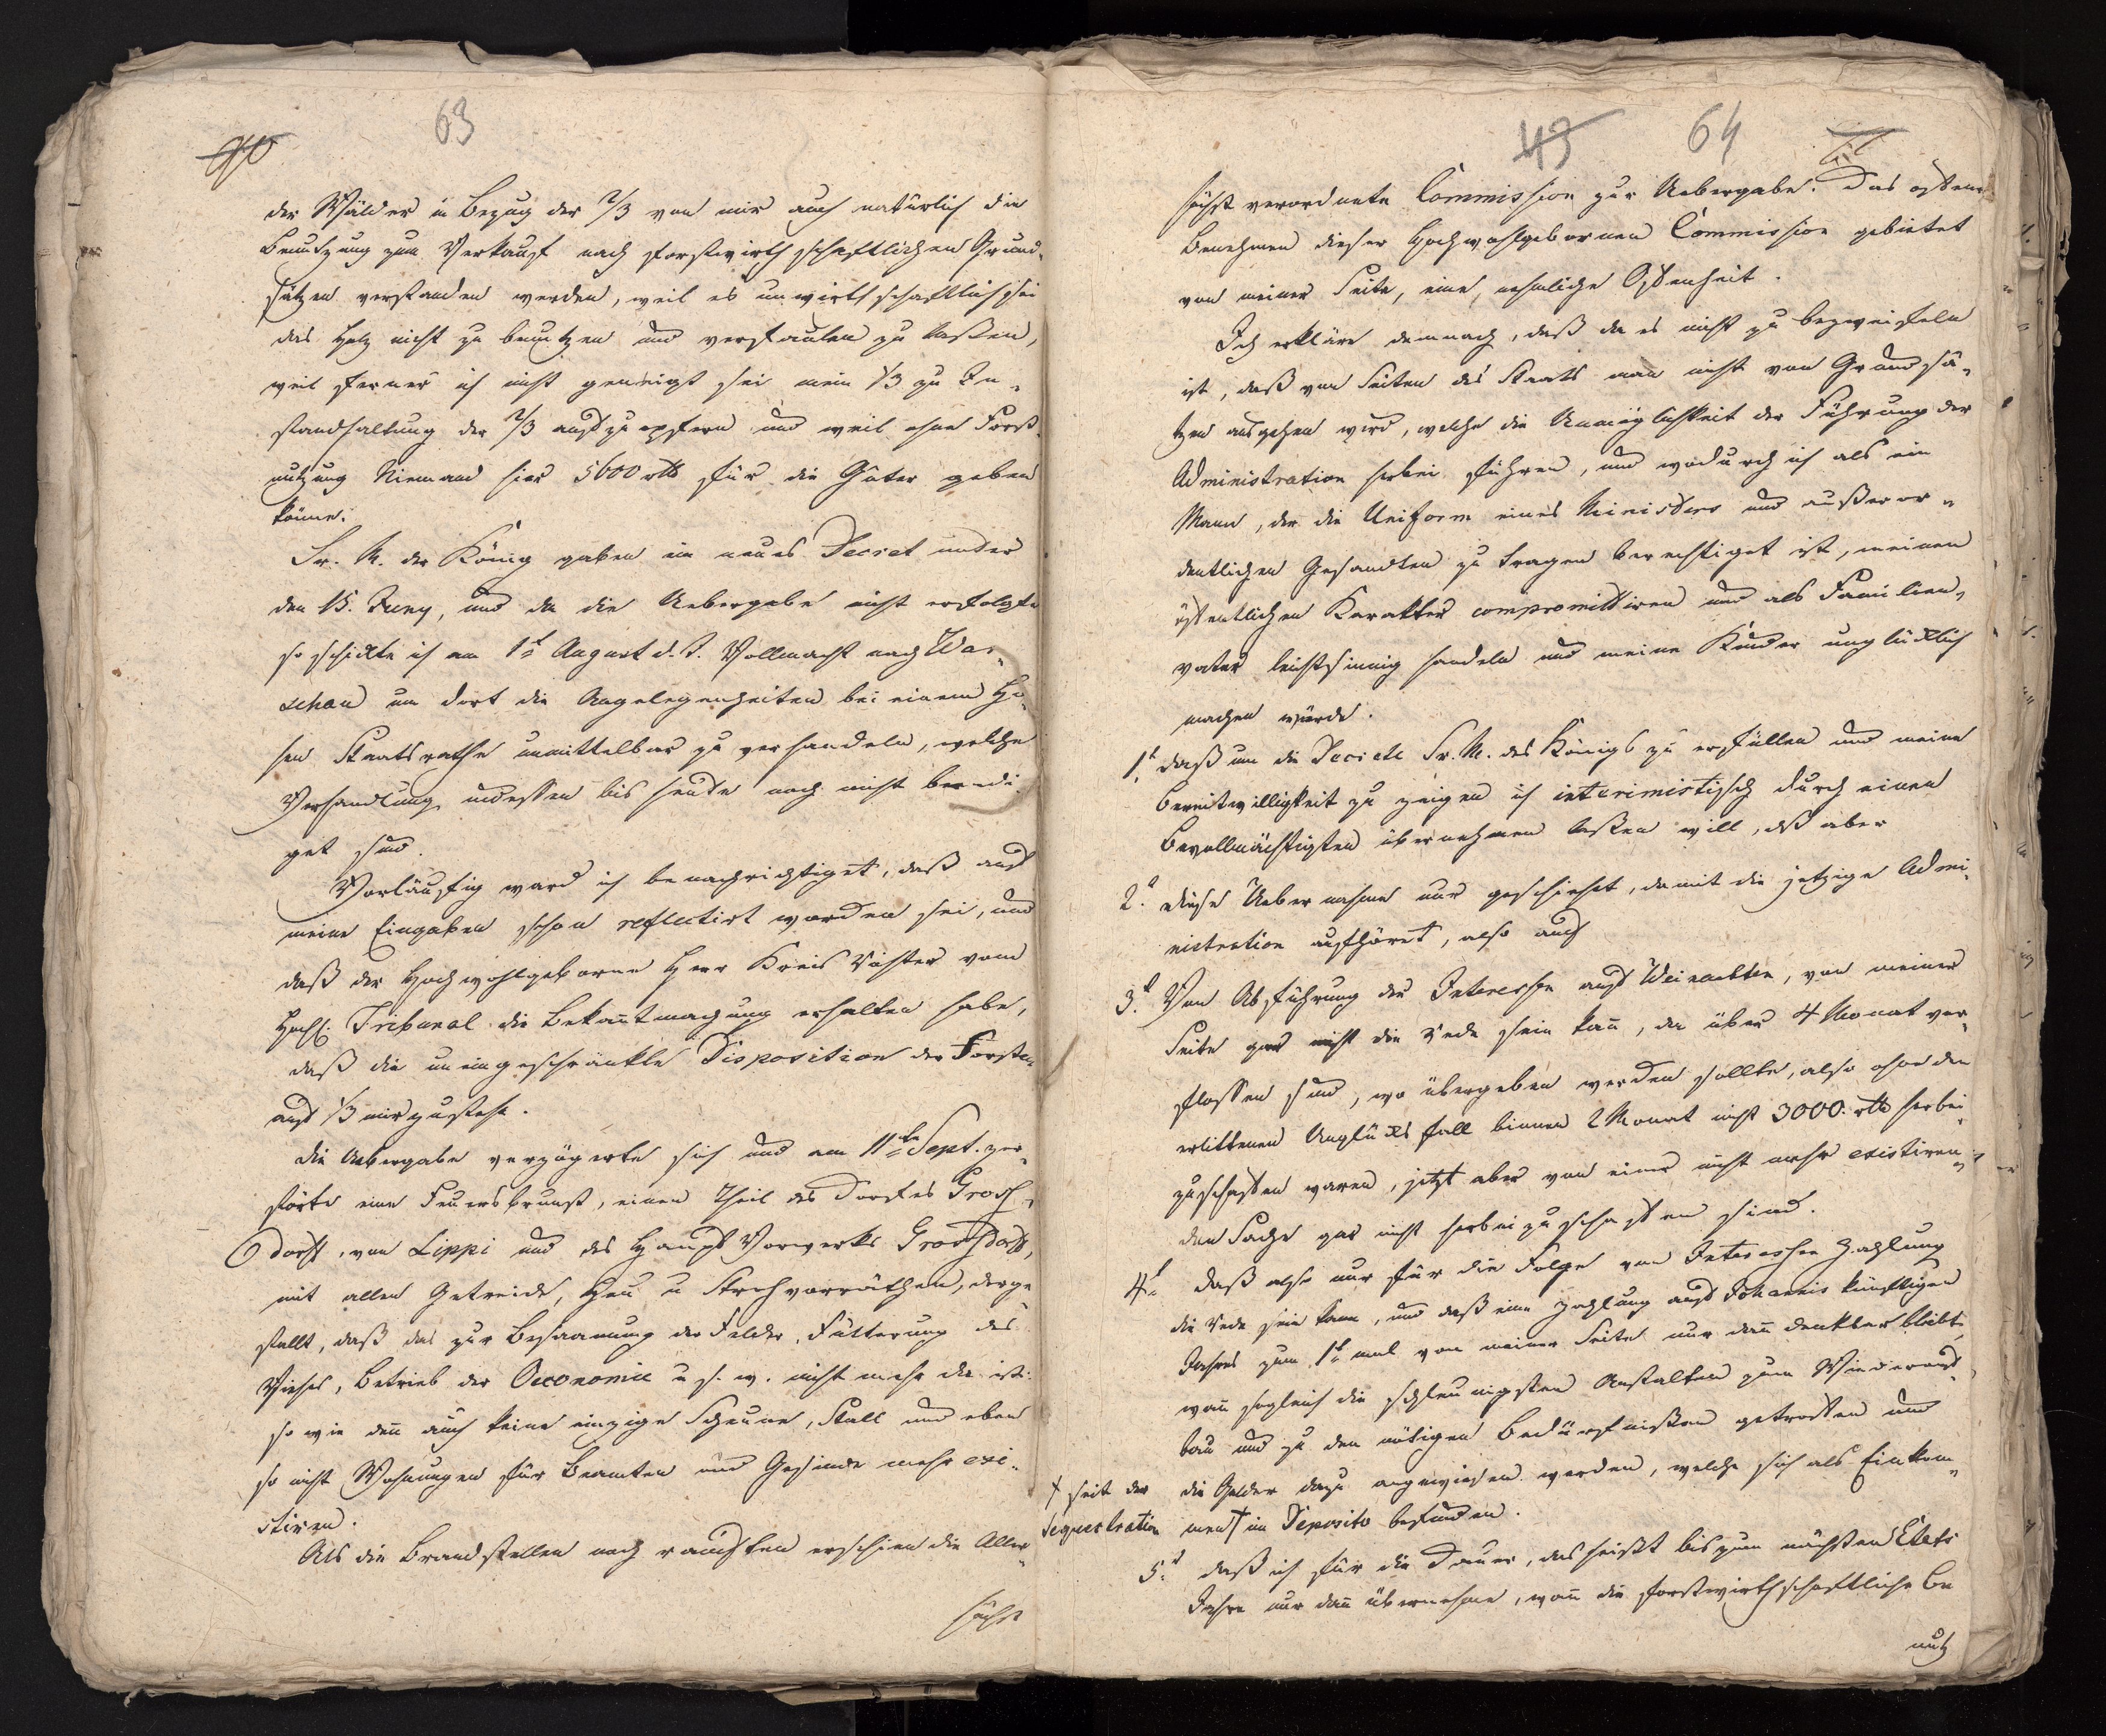 63
40
der Wälder in Bezug der 2/3 von mir auch natürlich die
Benutzung zum Verkauf nach forstwirthschaftlichen Grund-
sätzen verstanden werden, weil es unwirthschaftlich sei
das Holz nicht zu benutzen und verfaulen zu laßen,
weil ferner ich nicht geneigt sei mein 1/3 zu In-
standhaltung der 2/3 aufzuopfern und weil ohne Forst-
nutzung Niemand hier 5600 rtl für die Güter geben
könne.
Sr. M. der König gaben ein neues Decret unter
den 15. Juny, und da die Uebergabe nicht erfolgte
so schickte ich am 1t August d. J. Vollmacht nach War-
schau um dort die Angelegenheiten bei einem Ho-
hen Staatsrathe unmittelbar zu verhandeln, welche
Verhandlung indessen bis heute noch nicht beendi-
get sind.
Vorläufig ward ich benachrichtiget, daß auf
meine Eingaben schon reflectirt worden sei, und
daß der Hochwohlgeborne Herr Kreis Richter vom
Hochl. Tribunal die Bekantmachung erhalten habe,
daß die uneingeschränkte Disposition der Forsten
auf 1/3 mir zustehe.
Die Uebergabe verzögerte sich und am 11te Sept. zer-
störte eine Feuersbrunst, einen Theil des Dorfes Grosch-
dorff, von Lippi und des Haupt Vorwerks Groschdorff,
mit allen Getreide, Heu u Strohvorräthen, derge-
stallt, daß das zur Besaamung der Felder, Fütterung des
Viehes, Betrieb der Oeconomie u. s. w. nicht mehr da ist.
so wie den auch keine einzige Scheune, Stall und eben
so nicht Wohnungen für Beamten und Gesinde mehr exi-
stiren.
Als die Brandstellen noch rauchten erschien die Aller-
höchst
43
64
41
höchst verordnete Commission zur Uebergabe. Das offene
Benehmen dieser Hochwohlgebornen Commission gebietet
von meiner Seite, eine, nehmliche Offenheit.
Ich erkläre demnach, daß da es nicht zu bezweifeln
ist, daß von Seiten des Staats man nicht von Grundsä-
tzen ausgehen wird, welche die Unmöglichkeit der Führung der
Administration herbei führen, und wodurch ich als ein
Mann, der die Uniform eines Ministers und außeror-
dentlichen Gesandten zu tragen berechtiget ist, meinen
öffentlichen Karakter compromittiren und als Familien-
vater leichtsinnig handeln und meine Kinder unglücklich
machen würde.
1.t daß um die Decrete Sr. M. des Königs zu erfüllen und meine
Bereitwilligkeit zu zeigen ich interimistisch durch einen
Bevollmächtigten übernehmen laßen will, daß aber
2.t diese Uebernahme nur geschiehet, damit die jetzige Admi-
nistration aufhöret, also auch
3.t Von Abführung der Interessen auf Weinachten, von meiner
Seite gar nicht die Rede sein kan, da über 4 Monat ver-
flossen sind, wo übergeben werden sollte, also ohne den
erlittenen Unglücks fall binnen 2 Monat nicht 3000. rtl herbei
zuschaffen waren, jetzt aber von einer nicht mehr existiren-
den Sache gar nicht herbeizuschaffen sind.
4.t daß also nur für die Folge von Interessen Zahlung
die Rede sein kann, und daß eine Zahlung auf Johannis künftigen
Jahres zum 1t mal von meiner Seite nur dann denkbar bleibt,
wan sogleich die schleunigsten Anstalten zum Wiederauf-
bau und zu den nötigen Bedürfnißen getroffen und
die Gelder dazu angewiesen werden, welche sich als Einkom-
men † im Deposito befinden.
† seit der
Sequestration
5.t daß ich für die Dauer, das heißt bis zum nächsten Etats
Jahre nur dan übernehme, wan die forstwirthschaftliche Be-
nutz